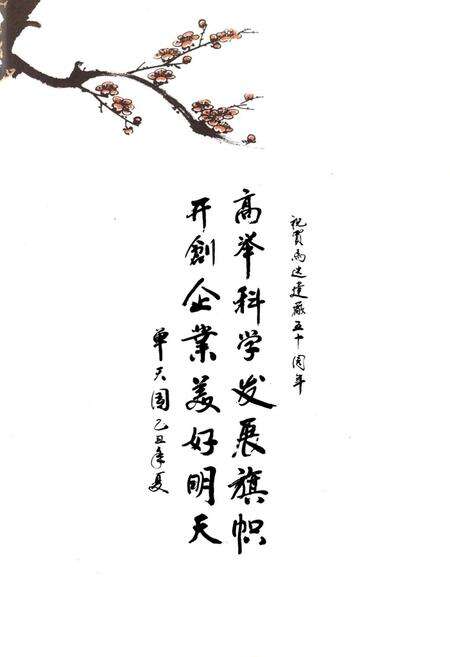 祝贺马达建厰五十周年
高举科学发展旗帜
开創企業美好明天
单天国己丑年夏